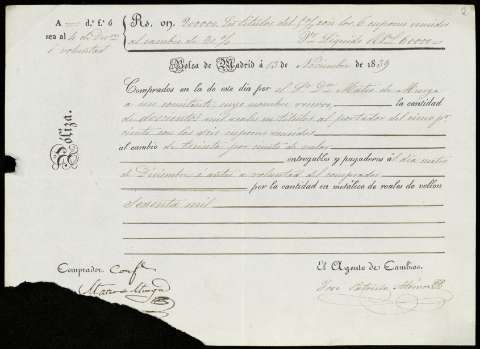 2
A d.s f. 6
sea al 16 de Dve
á voluntad
Rs. vn. 200000. En títulos del 5 p% con los 6 cupones vencidos
al cambio de 30 %
Pr. Líquido R.s vn. 60000
Bolsa de Madrid á 13 de Noviembre de 1839
Comprados en la de este dia por el Sr. Dn. Mateo de Murga
á un comitente cuyo nombre reserva la cantidad
de doscientos mil reales en títulos al portador del cinco pr.
ciento con los seis cupones vencidos
al cambio de treinta por ciento de valor
entregables y pagaderos al dia
de Diciembre ó antes á voluntad del comprador
por la cantidad en metálico de reales de vellon
Sesenta mil
Póliza.
Comprador
Mateo de Murga
El Agente de Cambios.
Jose